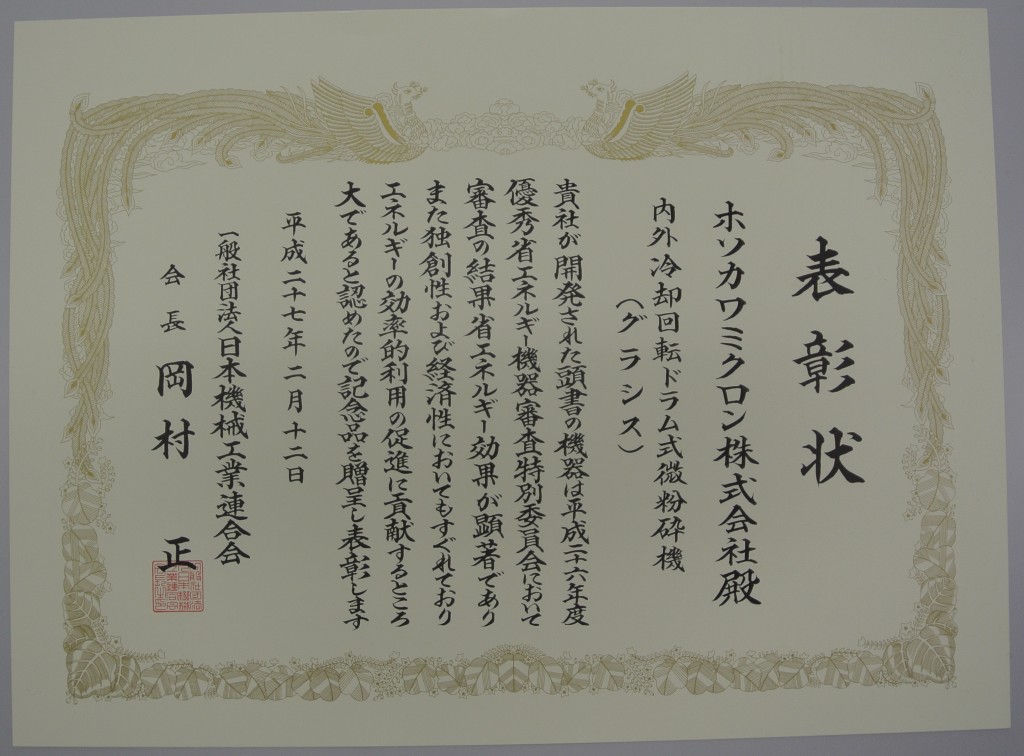 表彰状
ホソカワミクロン株式会社殿
内外冷却回転ドラム式微粉砕機
(グラシス)
貴社が開発された頭書の機器は平成二十六年度
優秀省エネルギー機器審査特別委員会において
審査の結果省エネルギー効果が顕著であり
また独創性および経済性においてもすぐれており
エネルギーの効率的利用の促進に貢献するところ
大であると認めたので記念品を贈呈し表彰します
平成二十七年二月十二日
一般社団法人日本機械工業連合会
会長 岡村 正